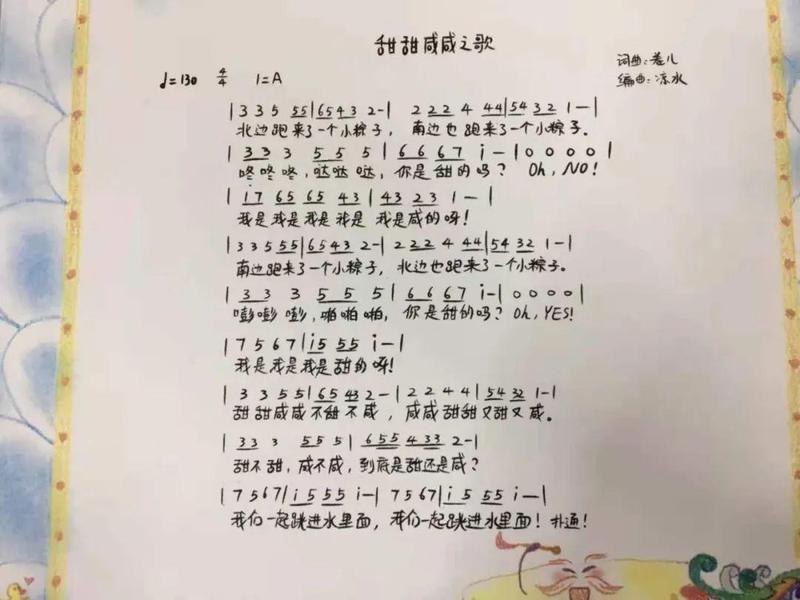 甜甜咸咸之歌
♩=130 4/4 1=A
词曲:差儿
编曲:凉水
|3 3 5 55|6543 2-| 2 22 4 44|5432 1-|
北边跑来了一个小粽子, 南边也跑来了一个小粽子.
|33 3 55 5|66 67 i-|0 0 0 0|
咚咚咚,哒哒哒,你是甜的吗? Oh, NO!
|i7 65 65 43|43 23 1-|
我是我是我是我是 我是咸的呀!
|3 3 5 55|6543 2-|2 22 4 44|54 32 1-|
南边跑来了一个小粽子, 北边也跑来了一个小粽子。
|33 3 55 5|66 67 i-|0 0 0 0|
嘭嘭嘭,啪啪啪,你是甜的吗? Oh, YES!
|7 5 6 7|i5 55 i-|
我是我是我是甜的呀!
|3 3 5 5|65 43 2-|2 2 4 4|54 32 1-|
甜甜咸咸不甜不咸,咸咸甜甜又甜又咸。
|33 3 55 5|655 433 2-|
甜不甜,咸不咸,到底是甜还是咸?
|7 5 6 7|i 5 55 i-|7 5 6 7|i 5 55 i-|
我们一起跳进水里面,我们一起跳进水里面! 扑通!